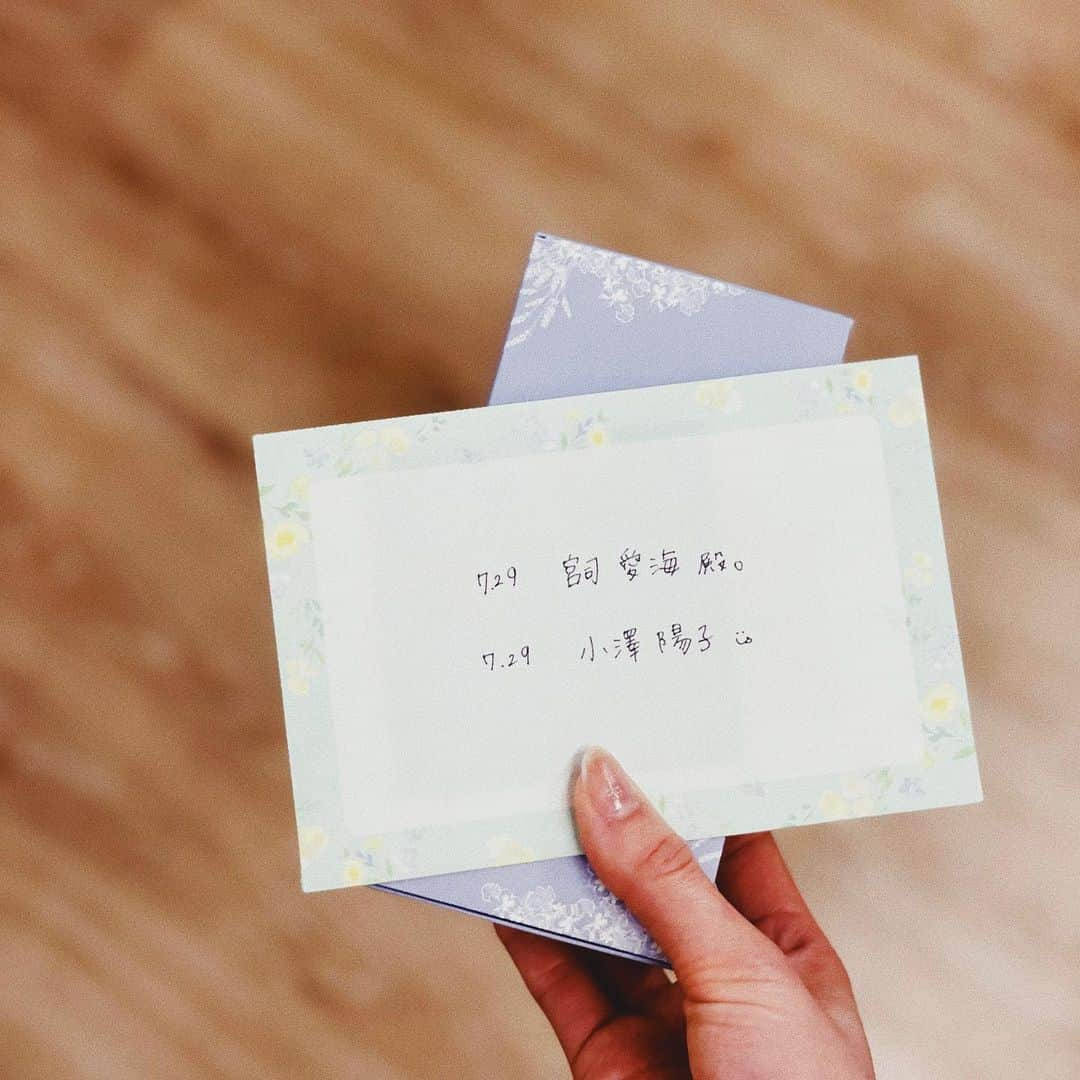 7.29 宮司 愛海 殿。
7.29 小澤 陽子